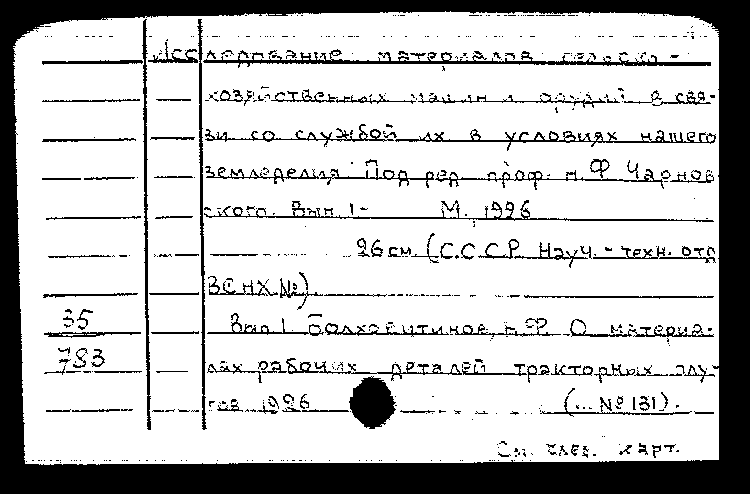 Исследование материалов сельско-
хозяйственных машин и орудий в свя-
зи со службой их в условиях нашего
земледелия Под ред. проф. Н. Ф. Чарнов-
ского. Вып. 1- М. 1926
26 см. (С.С.С.Р. Науч.-техн. отд
ВСНХ №).
35 Вып. 1. Болховитинов, Н. Ф. О материа-
783 лах рабочих деталей тракторных плу-
гов 1926 (... № 131).
См. след. карт.